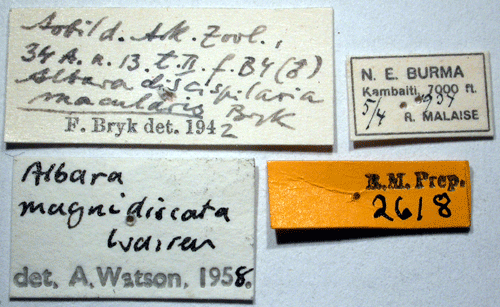 Avbild. Ark. Zool.,
34 A. n. 13. t. II f. B4 (♂)
Albara discispilaria
macularis Bryk
F. Bryk det. 1942
N. E. BURMA
Kambaiti, 7000 ft.
5/4 1934
R. MALAISE
Albara
magnidiscata
Warren
det. A. Watson, 1958.
R.M. Prep.
2618